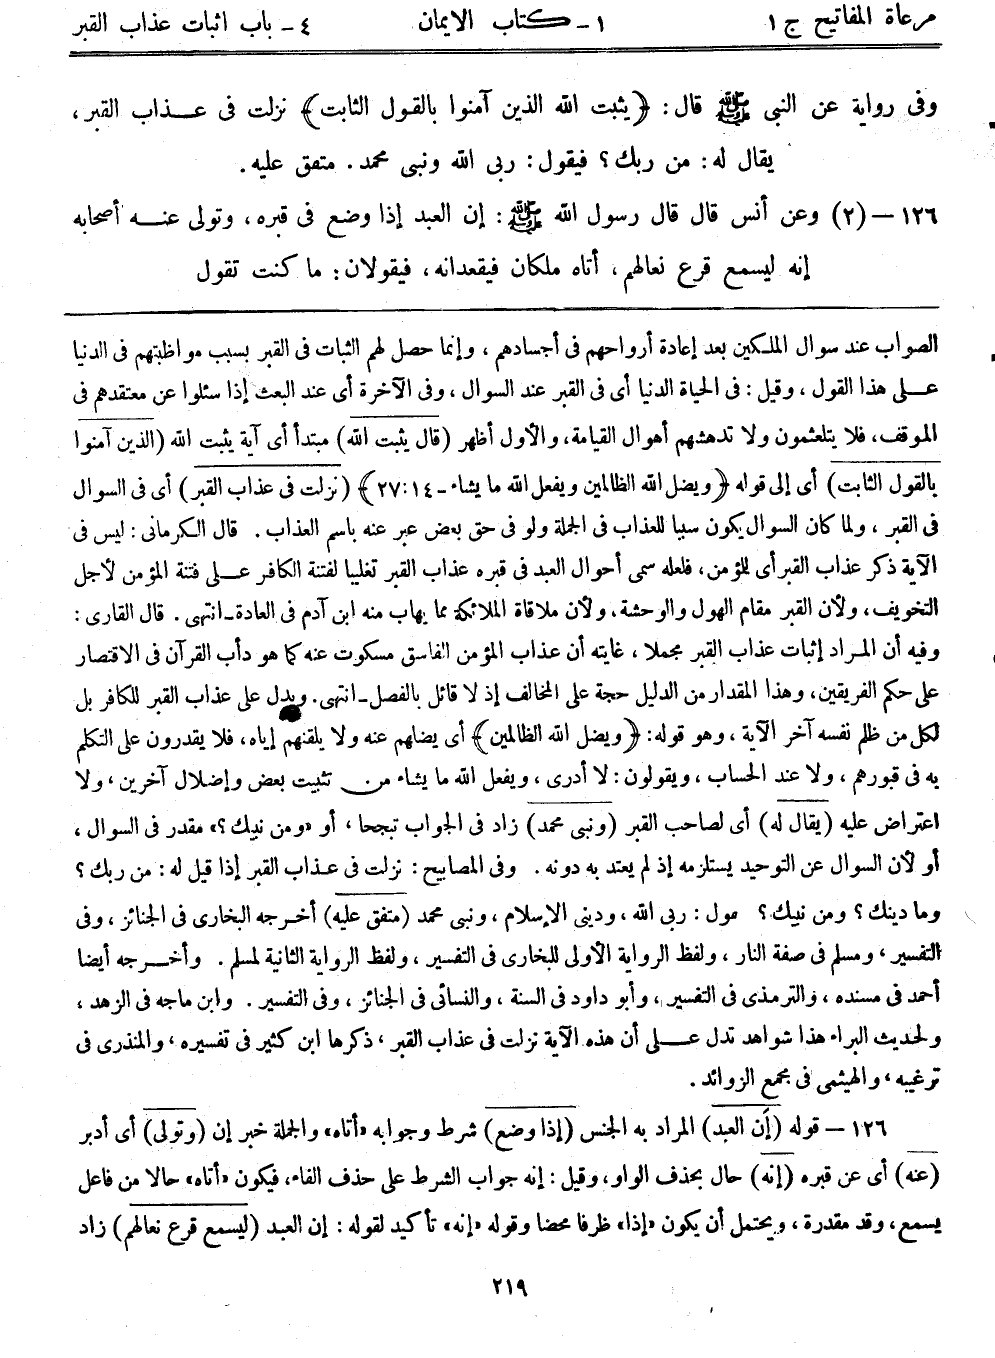 مرعاة المفاتيح ج ١ ١ ـ كتاب الايمان ٤ ـ باب اثبات عذاب القبر
وفى رواية عن النبى ﷺ قال: ﴿يثبت الله الذين آمنوا بالقول الثابت﴾ نزلت فى عذاب القبر،
يقال له: من ربك؟ فيقول: ربى الله ونبى محمد. متفق عليه.
١٢٦ – (٢) وعن أنس قال قال رسول الله ﷺ: إن العبد إذا وضع فى قبره، وتولى عنه أصحابه
إنه ليسمع قرع نعالهم، أتاه ملكان فيقعدانه، فيقولان: ما كنت تقول
الصواب عند سوال الملكين بعد إعادة أرواحهم فى أجسادهم، وإنما حصل لهم الثبات فى القبر بسبب مواظبتهم فى الدنيا
على هذا القول، وقيل: فى الحياة الدنيا أى فى القبر عند السوال، وفى الآخرة أى عند البعث إذا سئلوا عن معتقدهم فى
الموقف، فلا يتلعثمون ولا تدهشهم أهوال القيامة، والأول أظهر (قال يثبت الله) مبتدأ أى آية يثبت الله (الذين آمنوا
بالقول الثابت) أى إلى قوله ﴿ويضل الله الظالمين ويفعل الله ما يشاء ـ ٢٧:١٤﴾ (نزلت فى عذاب القبر) أى فى السوال
فى القبر، ولما كان السوال يكون سببا للعذاب فى الجملة ولو فى حق بعض عبر عنه باسم العذاب. قال الكرمانى: ليس فى
الآية ذكر عذاب القبر أى للؤمن، فلعله سمى أحوال العبد فى قبره عذاب القبر تغليبا لفتنة الكافر على فتنة المؤمن لأجل
التخويف، ولأن القبر مقام الهول والوحشة، ولأن ملاقاة الملائكة مما يهاب منه ابن آدم فى العادة ـ انتهى. قال القارى:
وفيه أن المراد إثبات عذاب القبر مجملا، غايته أن عذاب المؤمن الفاسق مسكوت عنه كما هو دأب القرآن فى الاقتصار
على حكم الفريقين، وهذا المقدار من الدليل حجة على المخالف إذ لا قائل بالفصل ـ انتهى. ويدل على عذاب القبر للكافر بل
لكل من ظلم نفسه آخر الآية، وهو قوله: ﴿ويضل الله الظالمين﴾ أى يضلهم عنه ولا يلقنهم إياه، فلا يقدرون على التكلم
به فى قبورهم، ولا عند الحساب، ويقولون: لا أدرى، ويفعل الله ما يشاء من تثبيت بعض وإضلال آخرين، ولا
اعتراض عليه (يقال له) أى لصاحب القبر (ونبى محمد) زاد فى الجواب تبجحا، أو «ومن نبيك؟» مقدر فى السوال،
أو لأن السوال عن التوحيد يستلزمه إذ لم يعتد به دونه. وفى المصابيح: نزلت فى عذاب القبر إذا قيل له: من ربك؟
وما دينك؟ ومن نبيك؟ قول: ربى الله، ودينى الإسلام، ونبى محمد (متفق عليه) أخرجه البخارى فى الجنائز، وفى
التفسير، ومسلم فى صفة النار، ولفظ الرواية الأولى للبخارى فى التفسير، ولفظ الرواية الثانية لمسلم. وأخرجه أيضا
أحمد فى مسنده، والترمذى فى التفسير، وأبو داود فى السنة، والنسائى فى الجنائز، وفى التفسير. وابن ماجه فى الزهد،
ولحديث البراء هذا شواهد تدل على أن هذه الآية نزلت فى عذاب القبر، ذكرها ابن كثير فى تفسيره، والمنذرى فى
ترغيبه، والهيثمى فى مجمع الزوائد.
١٢٦ – قوله (إن العبد) المراد به الجنس (إذا وضع) شرط وجوابه «أتاه» والجملة خبر إن (وتولى) أى أدبر
(عنه) أى عن قبره (إنه) حال بحذف الواو، وقيل: إنه جواب الشرط على حذف الفاء، فيكون «أتاه» حالا من فاعل
يسمع، وقد مقدرة، ويحتمل أن يكون «إذا» ظرفا محضا وقوله «إنه» تأكيد لقوله: إن العبد (ليسمع قرع نعالهم) زاد
٢١٩